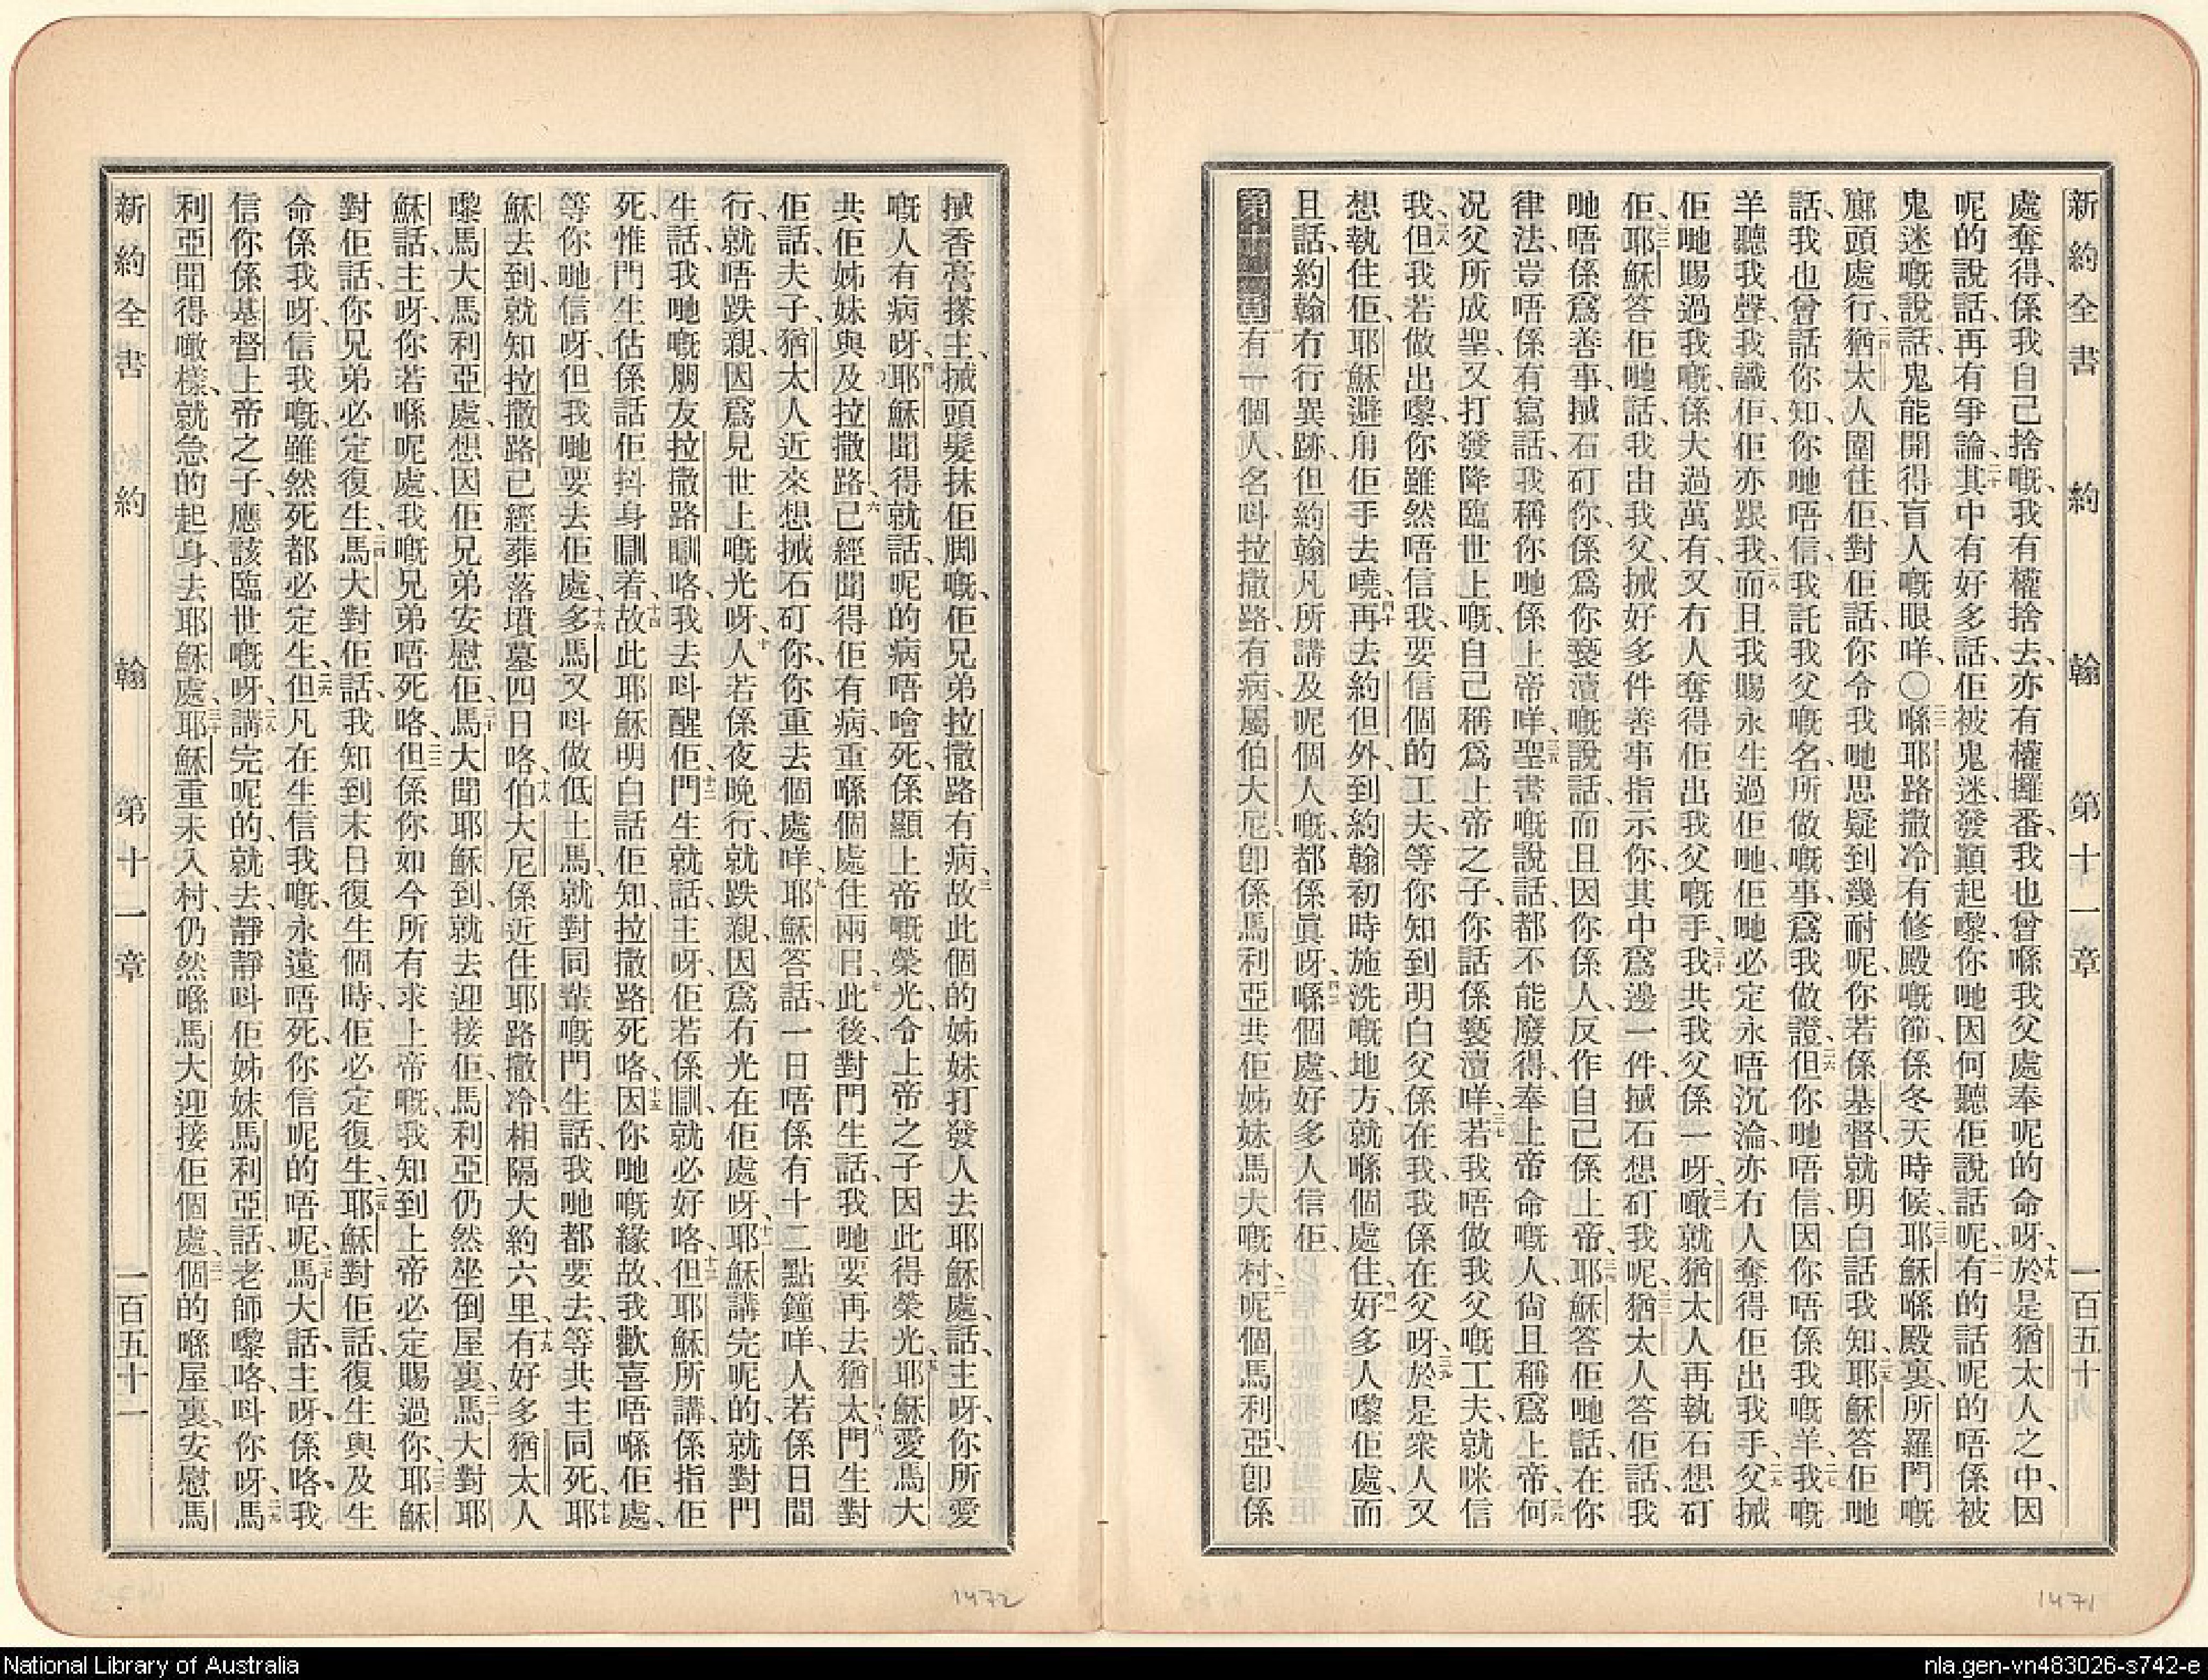 新約全書 約翰 第十一章 一百五十
處奪得、係我自己捨嘅、我有權捨去、亦有權攞番、我也曾喺我父處奉呢的命呀、十九於是猶太人之中、因
呢的說話、再有爭論、二十其中有好多話、佢被鬼迷發顚起嚟、你哋因何聽佢說話呢、二一有的話呢的唔係被
鬼迷嘅說話、鬼能開得盲人嘅眼咩、〇二二喺耶路撒冷有修殿嘅節、係冬天時候、二三耶穌喺殿裏、所羅門嘅
廊頭處行、二四猶太人圍住佢、對佢話、你令我哋思疑到幾耐呢、你若係基督、就明白話我知、二五耶穌答佢哋
話、我也曾話你知、你哋唔信、我託我父嘅名、所做嘅事、爲我做證、二六但你哋唔信、因你唔係我嘅羊、二七我嘅
羊聽我聲、我識佢、佢亦跟我、二八而且我賜永生過佢哋、佢哋必定永唔沉淪、亦冇人奪得佢出我手、二九父搣
佢哋賜過我嘅、係大過萬有、又冇人奪得佢出我父嘅手、三十我共我父係一呀、三一噉就猶太人再執石想矴
佢、三二耶穌答佢哋話、我由我父、搣好多件善事指示你、其中爲邊一件、搣石想矴我呢、三三猶太人答佢話、我
哋唔係爲善事、搣石矴你、係爲你褻瀆嘅說話、而且因你係人、反作自己係上帝、三四耶穌答佢哋話、在你
律法、豈唔係有寫話、我稱你哋係上帝咩、三五聖書嘅說話、都不能廢得、奉上帝命嘅人、尙且稱爲上帝、三六何
况父所成聖、又打發降臨世上嘅、自己稱爲上帝之子、你話係褻瀆咩、三七若我唔做我父嘅工夫、就咪信
我、三八但我若做出嚟、你雖然唔信我、要信個的工夫、等你知到明白父係在我、我係在父呀、三九於是衆人又
想執住佢、耶穌避甪佢手去嘵、四十再去約但外、到約翰初時施洗嘅地方、就喺個處住、四一好多人嚟佢處、而
且話、約翰冇行異跡、但約翰凡所講及呢個人嘅、都係眞呀、四二喺個處、好多人信佢、
第十一章 一有一個人、名呌拉撒路、有病、屬伯大尼、卽係馬利亞共佢姊妹馬大嘅村、二呢個馬利亞、卽係
搣香膏搽主、搣頭髮抹佢脚嘅、佢兄弟拉撒路有病、三故此個的姊妹打發人去耶穌處、話、主呀、你所愛
嘅人有病呀、四耶穌聞得就話、呢的病唔噲死、係顯上帝嘅榮光、令上帝之子因此得榮光、五耶穌愛馬大
共佢姊妹與及拉撒路、六已經聞得佢有病、重喺個處住兩日、七此後、對門生話、我哋要再去猶太、八門生對
佢話、夫子、猶太人近來想搣石矴你、你重去個處咩、九耶穌答話、一日唔係有十二點鐘咩、人若係日間
行、就唔跌親、因爲見世上嘅光呀、十人若係夜晚行、就跌親、因爲有光在佢處呀、十一耶穌講完呢的、就對門
生話、我哋嘅朋友拉撒路瞓咯、我去呌醒佢、十二門生就話、主呀、佢若係瞓、就必好咯、十三但耶穌所講、係指佢
死、惟門生估係話佢抖身瞓着、十四故此耶穌明白話佢知、拉撒路死咯、十五因你哋嘅緣故、我歡喜唔喺佢處、
等你哋信呀、但我哋要去佢處、十六多馬又呌做低土馬、就對同輩嘅門生話、我哋都要去、等共主同死、十七耶
穌去到、就知拉撒路已經葬落墳墓四日咯、十八伯大尼係近住耶路撒冷、相隔大約六里、十九有好多猶太人
嚟馬大馬利亞處、想因佢兄弟安慰佢、二十馬大聞耶穌到、就去迎接佢、馬利亞仍然坐倒屋裏、二一馬大對耶
穌話、主呀、你若喺呢處、我嘅兄弟唔死咯、二二但係你如今所有求上帝嘅、我知到上帝必定賜過你、二三耶穌
對佢話、你兄弟必定復生、二四馬大對佢話、我知到末日復生個時、佢必定復生、二五耶穌對佢話、復生與及生
命係我呀、信我嘅、雖然死都必定生、二六但凡在生信我嘅、永遠唔死、你信呢的唔呢、二七馬大話、主呀、係咯、我
信你係基督、上帝之子、應該臨世嘅呀、二八講完呢的、就去靜靜呌佢姊妹馬利亞話、老師嚟咯、呌你呀、二九馬
利亞聞得噉樣、就急的起身、去耶穌處、三十耶穌重未入村、仍然喺馬大迎接佢個處、三一個的喺屋裏、安慰馬
新約全書 約翰 第十一章 一百五十一
1472
1471
National Library of Australia
nla.gen-vn483026-s742-e